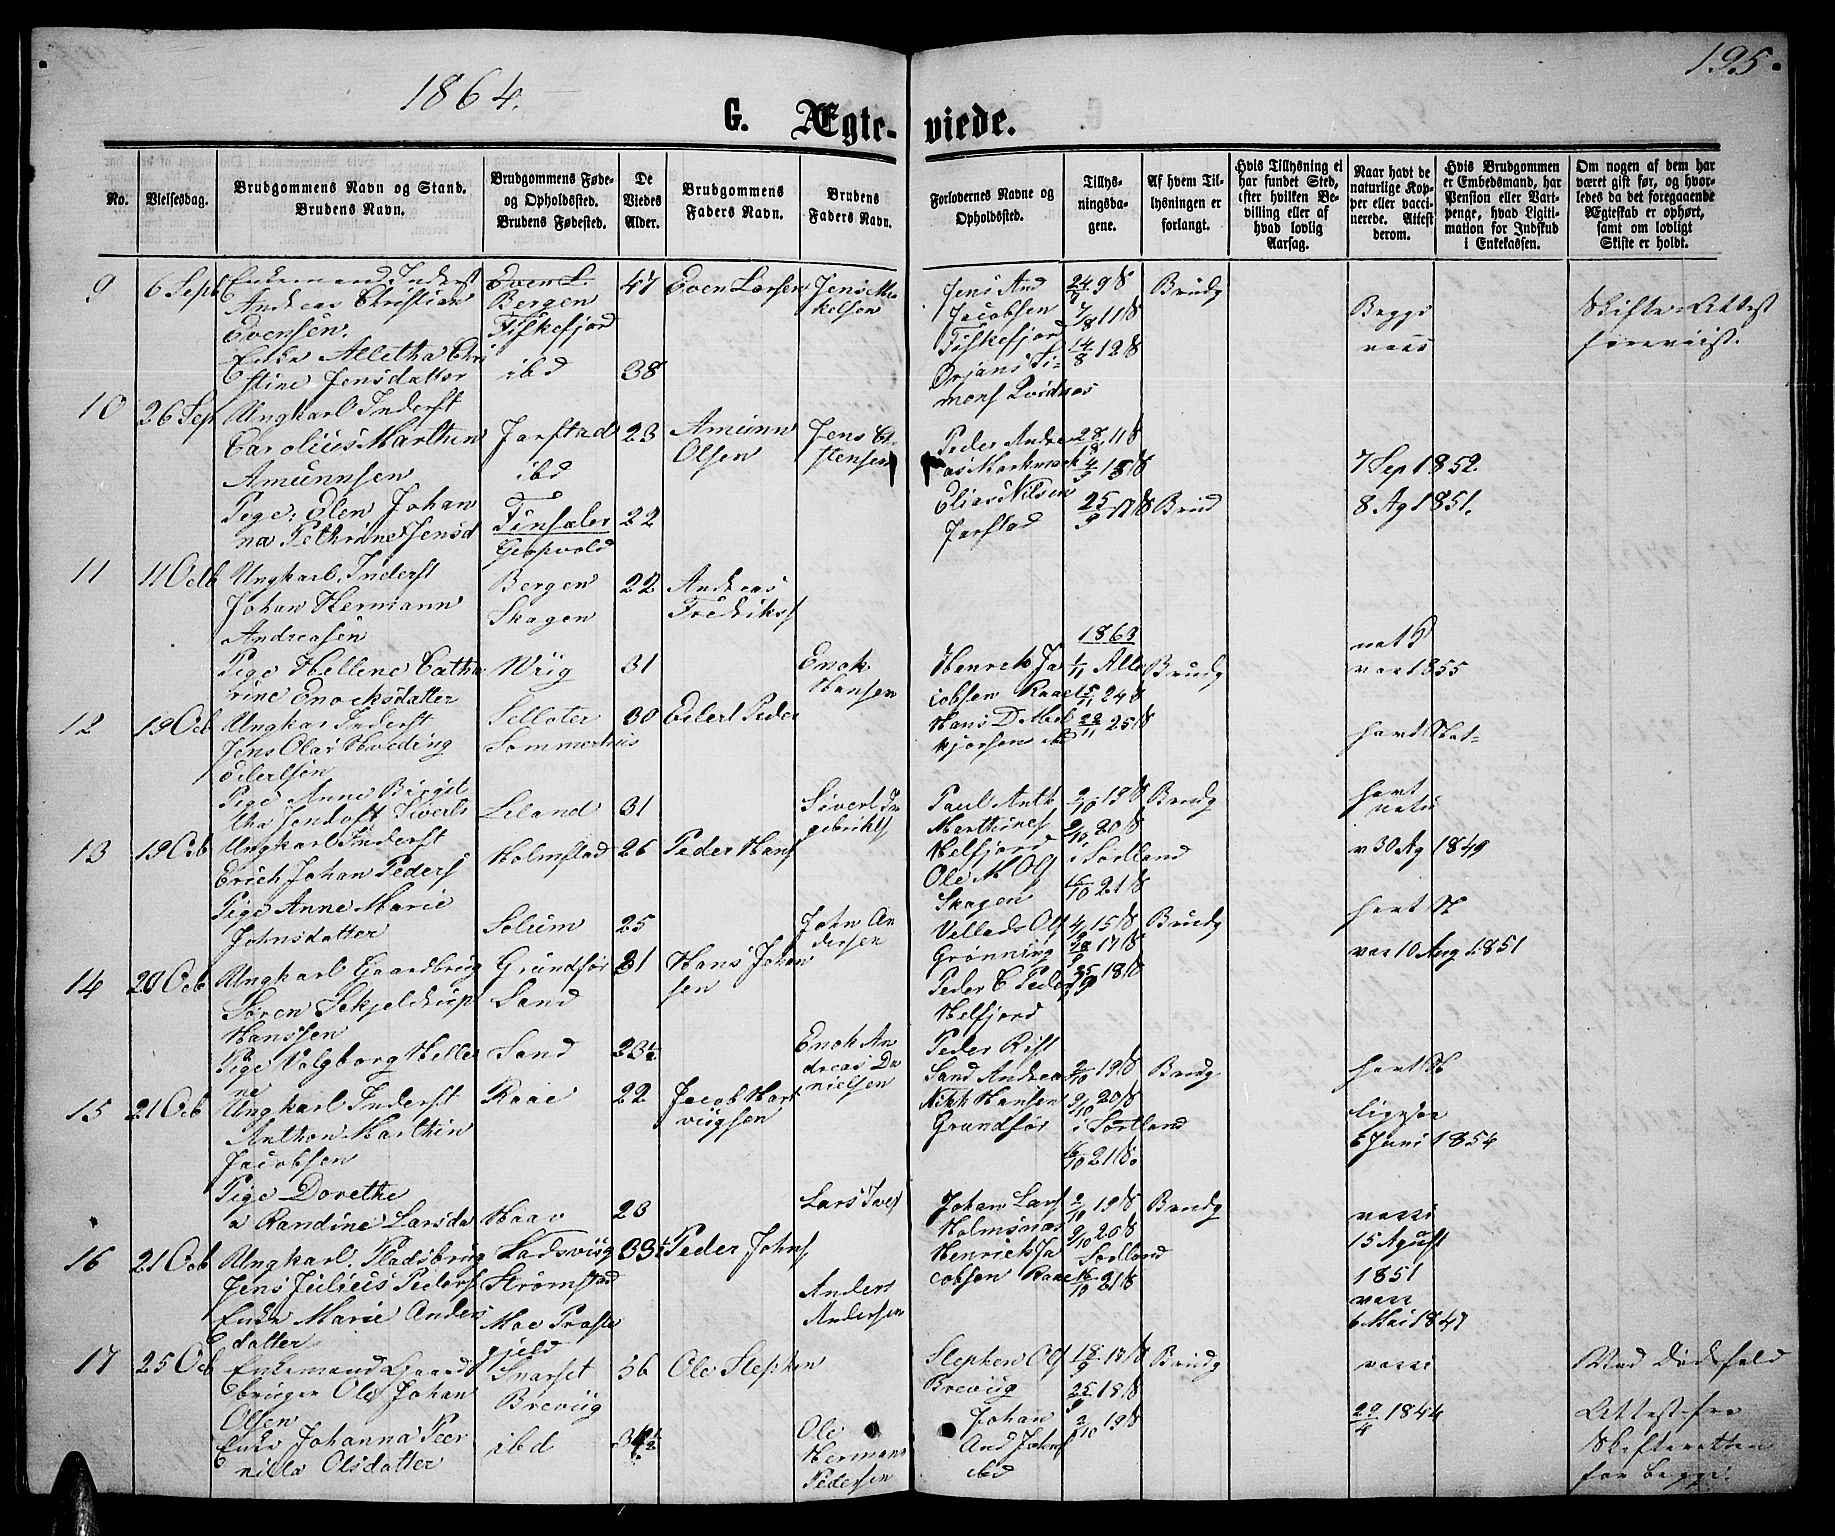 1864.
195.
G. Ægte-viede.
No.
Vielsesdag.
Brudgommens Navn og Stand.
Brudens Navn.
Brudgommens Føde-
og Opholdssted.
Brudens Fødested.
De
Viedes
Alder.
Brudgommens
Faders Navn.
Brudens
Faders Navn.
Forlovernes Navne og
Opholdssted.
Tillys-
ningsda-
gene.
Af hvem Til-
lysningen er
forlangt.
Hvis Tillysning ei
har fundet Sted,
efter hvilken Be-
villing eller af
hvad lovlig
Aarsag.
Naar havt de
naturlige Kop-
per eller vacci-
nerede. Attest
derom.
Hvis Brudgommen
er Embedsmand, har
Pension eller Vart-
penge, hvad Ligiti-
mation for Indskud
i Enkekassen.
Om nogen af dem har
været gift før, og hvor-
ledes da det foregaaende
Ægteskab er ophørt,
samt om lovligt
Skifte er holdt.
9 6 Sept Enkemand Inderst
Andreas Christian
Evensen.
Enke Alletha Chri
stine Jensdatter
Bergen
Fiskefjord
ibd
47
38
Even Larsen
Jens Mi
kelsen
Jens And
Jacobsen
Fiskefjord
Orjans Si-
mons
24/7 9 S
7/8 11 S
14/8 12 S
Brudg
Begge
vacs
Skifte-Attest
foreviist.
10 26 Sep Ungkarl Inderst
Carolius Marthin
Amunnsen
Pige: Elen Johan
na Pethrine Jensd
Jarstad
ibd
23
22
Amunn
Olsen
Jens
stensen
Peder Andre
as Markmark
Elias Nilsen
Jarstad
28/8 11 S
4/9 15 S
25/9 17 S
Brud
7 Sep 1852.
8 Ag 1851.
11 11 Octb Ungkarl. Inderst
Johan Hermann
Andreasen
Pige Hellene Catha
rine Enochsdatter
Bergen
Skagen
Wiig
22
31
Andreas
Fredriks
Enok
Hansen
Henrich Ja
cobsen Raae
Hans D Mel
1863
1/11 Alle
15/11 24 S
22/11 25 S
Brudg
nat
vac 1855
12 19 Ocb Ungkar Inderst
Jens Olai Hveding
Eilertsen
Pige Anne Birgit
Selloter
Sommerhus
Leland
30
31
Eilert Peder
Sivert In
gebrikts
Paul Anth
Marthines
Helfjord
2/10 19 S
9/10 20 S
i Sortland
16/10 21 S
Brudg
havt Nat-
havt
natu
13 19 Ocb Ungkarl Inderst
Erich Johan Peders
Pige Anne Marie
Johnsdatter
Holmstad
Solum
26
25
Peder Hans
John An
dersen
Ole M Ol
Skagen
Vellads Ols
Grønning
Peder C Peder
Helfjord
15 S
17 S
25/9 18 S
Brudg
v 30 Ag 1849
havt N
vac 10 Aug 1851
14 20 Ocb Ungkarl Gaardbrug
Søren Sckjeldrup
Hanssen
Pige Valgborg Helle
ne
Grundfør
Sand
Sand
31
23½
Hans Johan
sen
Enok An
dreas Da
nielsen
Peder Rist
Sand Andrea
Nikk Hansen
Grundfør
2/10 19 S
9/10 20 S
i Sortland
16/10 21 S.
Brudg
havt N
6 Juni 1854
15 21 Ocb Ungkarl Inderst
Anthon Marthin
Jacobsen
Pige Dorethe
a Randine Larsda
Raae
Haav
22
23
Jacob Hart
viigsen
Lars Ives
Johan Lars
Holmsnæs
Henrich Ja
cobsen Raae
2/10 19 S
9/10 20 S
Sortland
16/10 21 S
Brudg
vacci
15 Agust
1851
vacc
6 Mai 1847
16 21 Ocb Ungkarl. Pladsbrug
Jens Julius Peders
Enke Marie Anders
datter
Ladsviig
Strømstad
Moe Præste
gjeld
33½
Peder Johns
Anders
Andersen
17 25 Ocb Enkemand Gaard
bruger Ole Johan
Olsen
Enke Johanna Peer
nilla Olsdatter
Snarset
Breviig
ibd
56
34½
Ole Stephen
Ole
Hermans
Pedersen
Stephen Ols
Breviig
Johan
And Johns
ibd
18/9 17 S
25/9 18 S
2/10 19 S
Brudg
vacci
29/4 1844
Ved Dødsfald
Attest fra
Skifteretten
for begge.